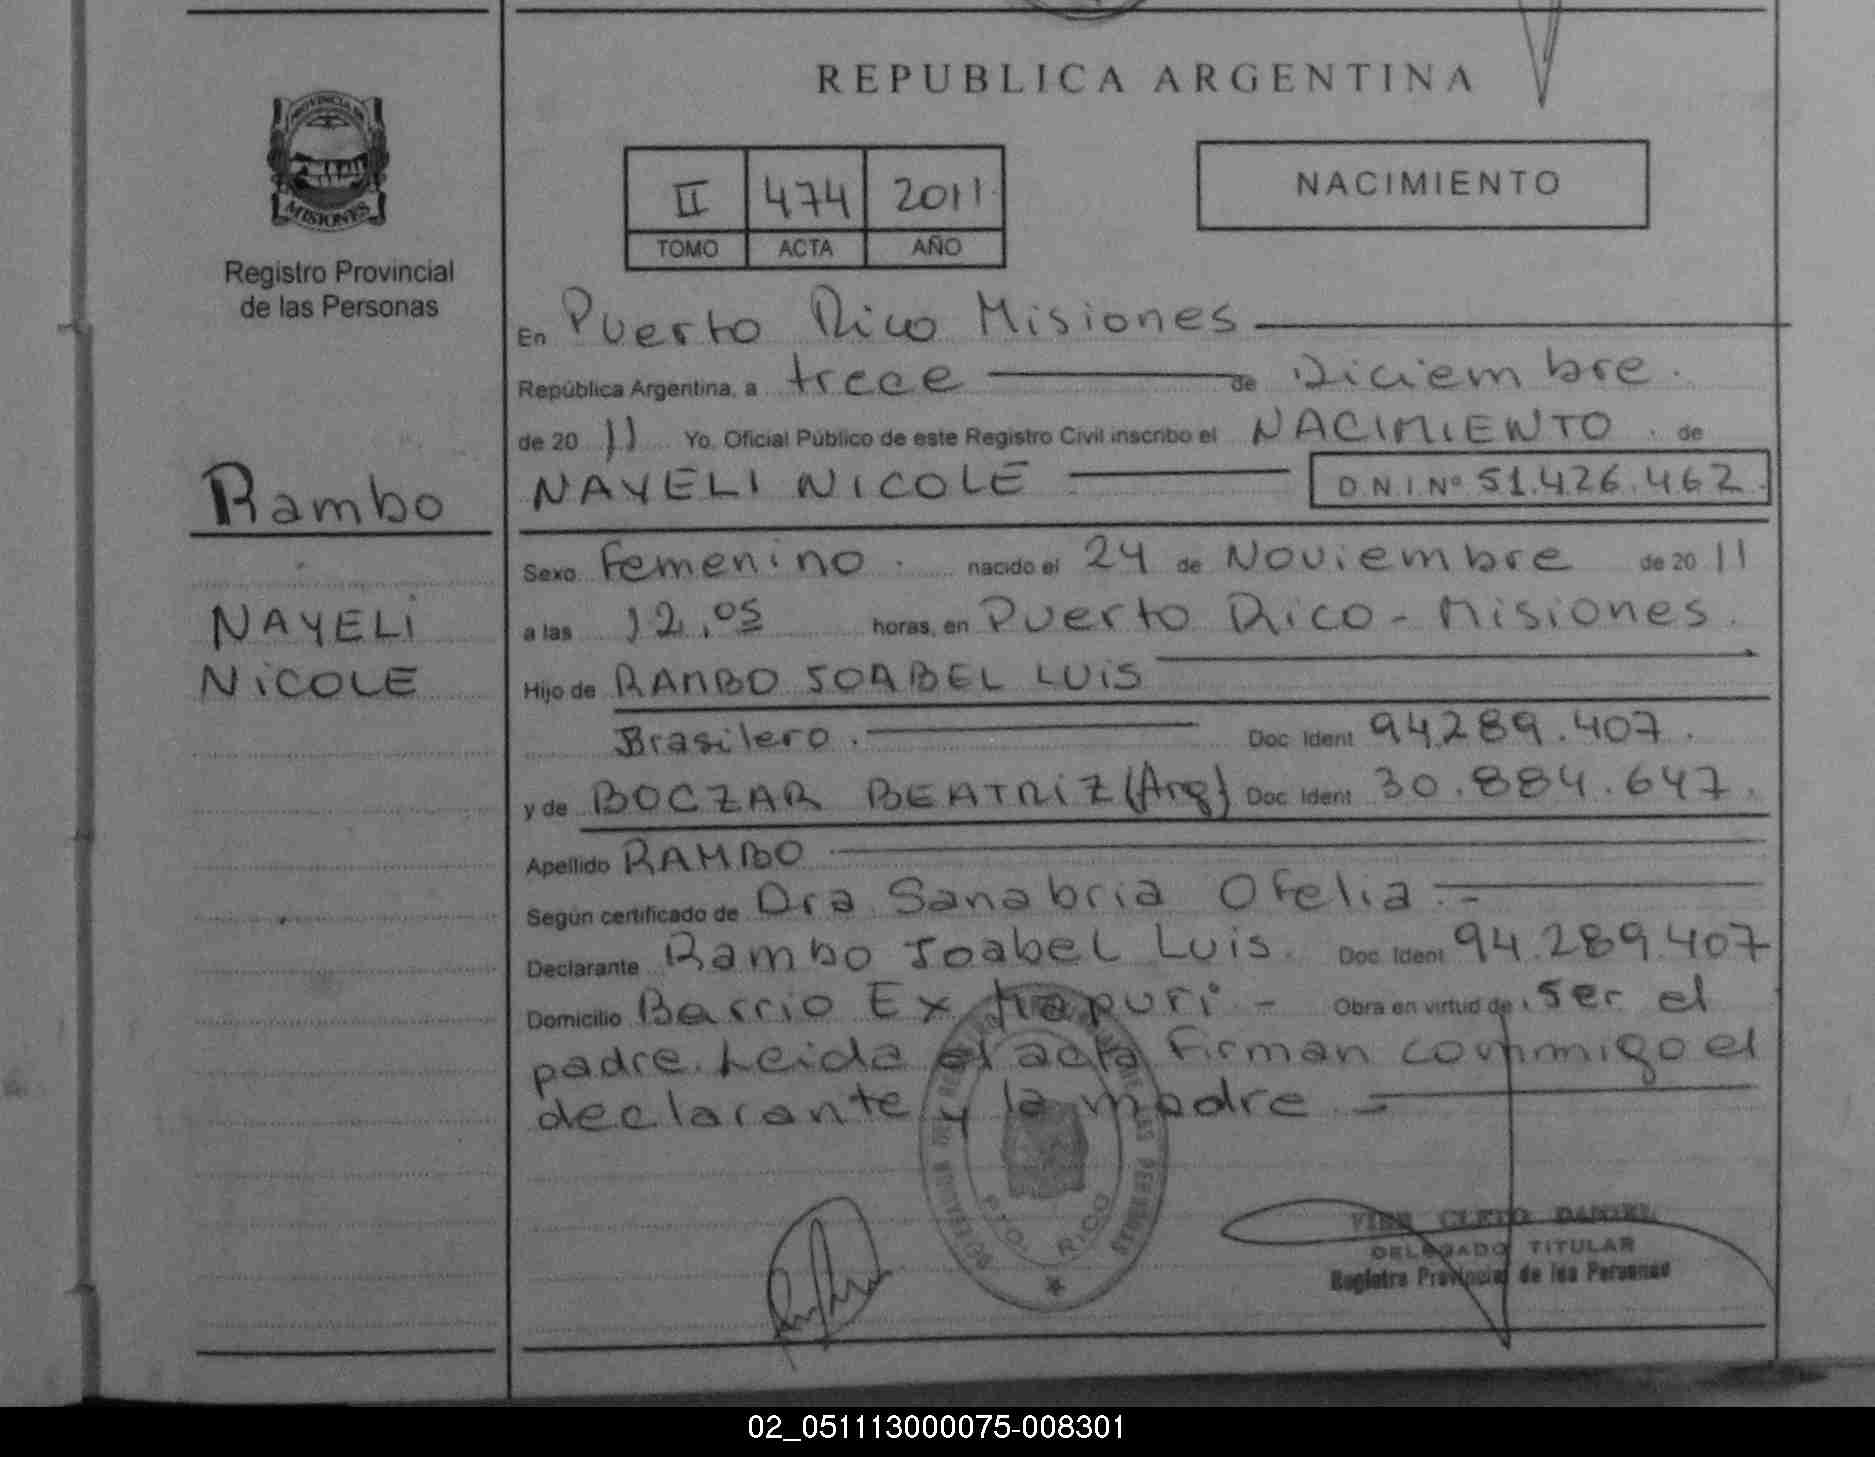 REPUBLICA ARGENTINA
PROVINCIA DE
MISIONES
Registro Provincial
de las Personas
II 474 2011
TOMO ACTA AÑO
NACIMIENTO
En Puerto Rico Misiones
República Argentina, a trece de Diciembre.
de 20 11 Yo, Oficial Público de este Registro Civil inscribo el NACIMIENTO de
Rambo
NAYELI NICOLE D.N.I.Nº 51.426.462.
Sexo Femenino. nacido el 24 de Noviembre de 20 11
NAYELI
NICOLE
a las 12.05 horas, en Puerto Rico - Misiones.
Hijo de RAMBO JOABEL LUIS
Brasilero. Doc. Ident 94.289.407.
y de BOCZAR BEATRIZ (Arg) Doc. Ident 30.884.647.
Apellido RAMBO
Según certificado de Dra Sanabria Ofelia.-
Declarante Rambo Joabel Luis. Doc. Ident 94.289.407
Domicilio Barrio Ex - Obra en virtud de: ser el
padre. Leida el acta firman conmmigo el
declarante y la madre.-
PTO. RICO
CLETO DANIEL
DELEGADO TITULAR
Registro Provincial de las Personas
02_051113000075-008301